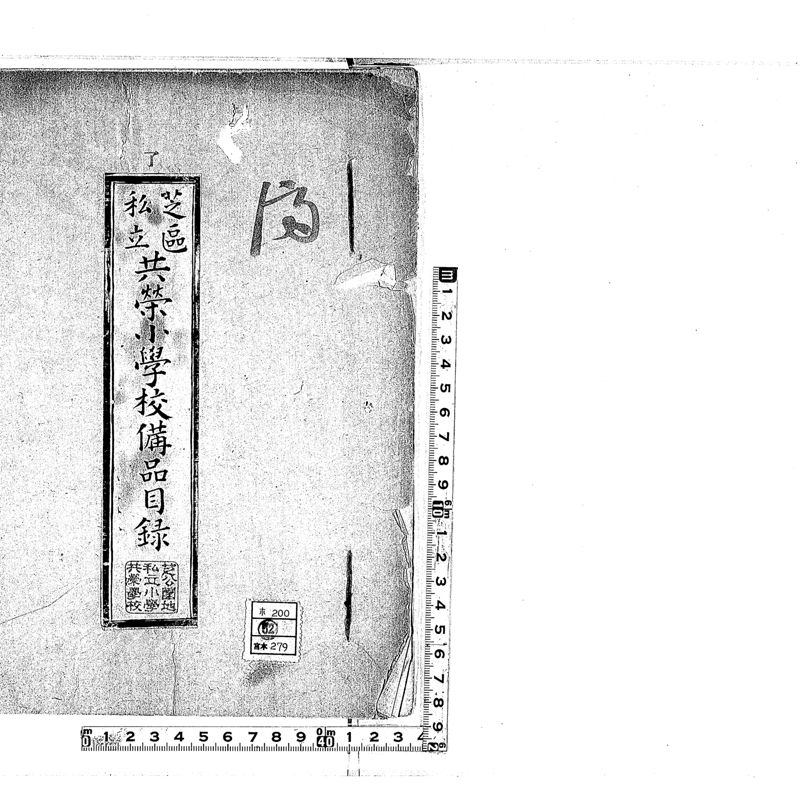 了
芝區
私立
共榮小學校備品目録
芝公園地
私立小學
共榮學校
ホ 200
52
宮本 279
m 1 2 3 4 5 6 7 8 9 10 1 2 3 4 5 6 7 8 9
0 1 2 3 4 5 6 7 8 9 10 1 2 3